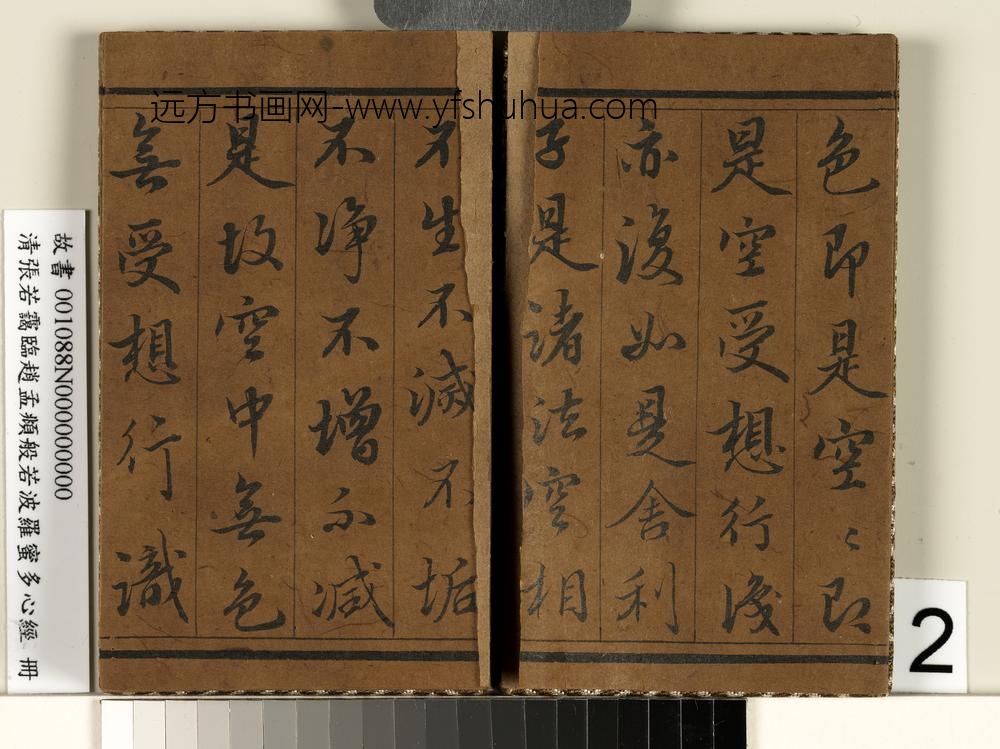 远方书画网-www.yfshuhua.com
色即是空〻即
是空受想行識
亦復如是舍利
子是諸法空相
不生不滅不垢
不淨不增不減
是故空中無色
無受想行識
故書 001088N000000000
清張若靄臨趙孟頫般若波羅蜜多心經 冊
2